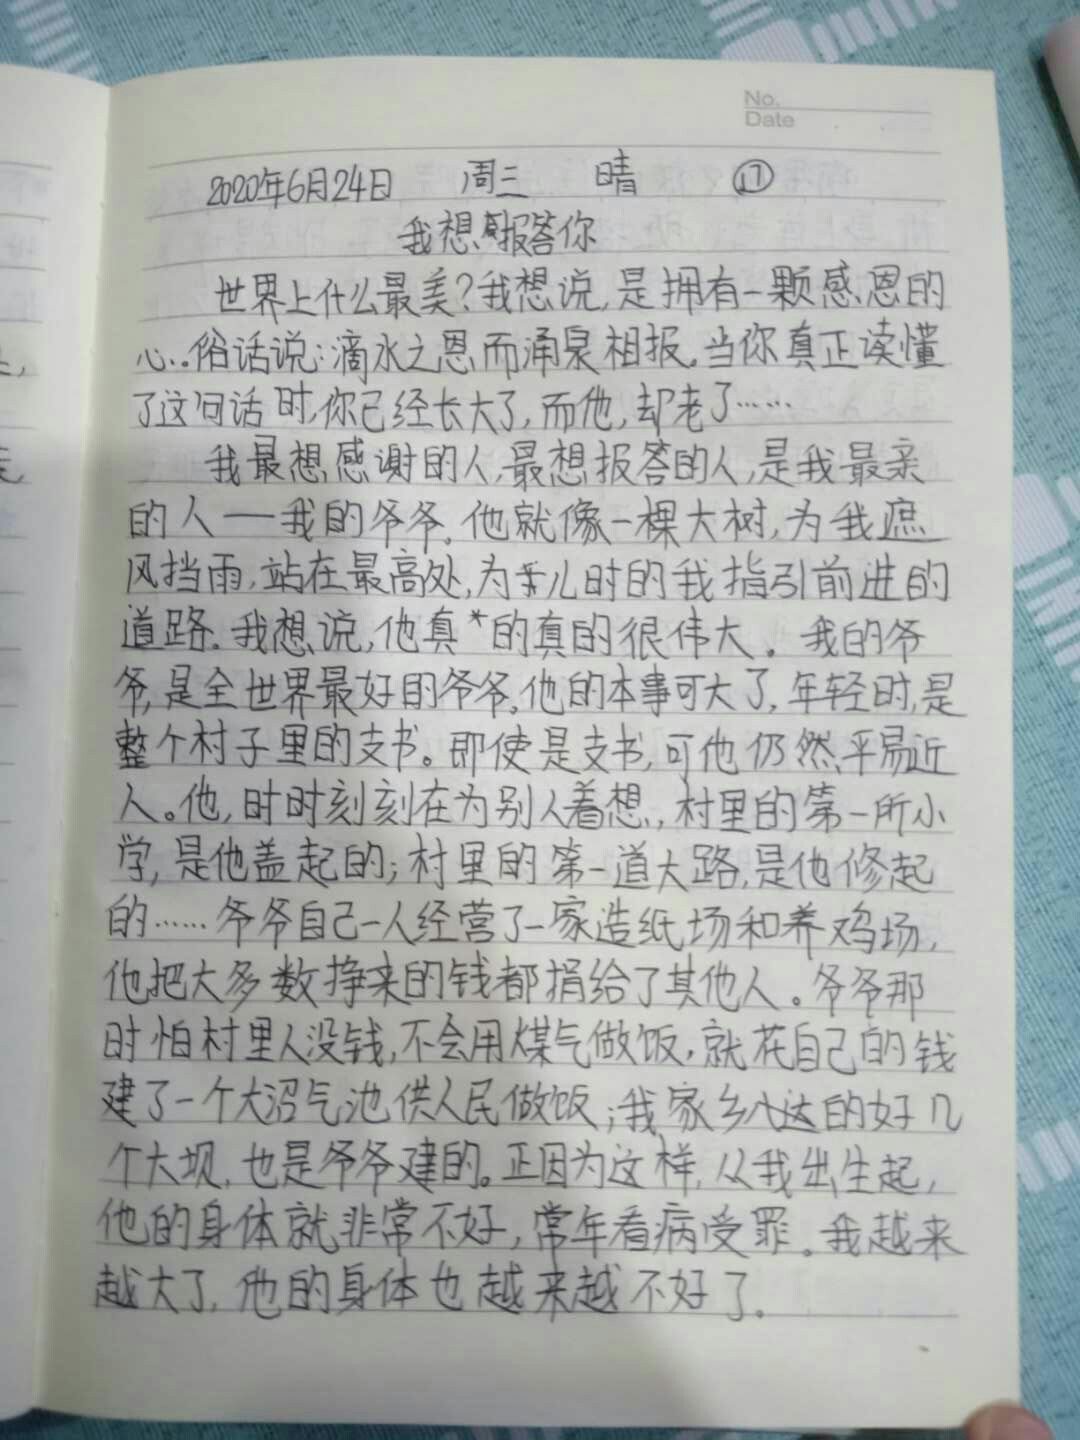 No.
Date
2020年6月24日 周三 晴 ⑰
我想报答你
世界上什么最美?我想说,是拥有一颗感恩的
心..俗话说:滴水之恩而涌泉相报。当你真正读懂
了这句话时,你已经长大了,而他,却老了……
我最想感谢的人,最想报答的人,是我最亲
的人——我的爷爷。他就像一棵大树,为我遮
风挡雨,站在最高处,为儿时的我指引前进的
道路。我想说,他真*的真的很伟大。我的爷
爷,是全世界最好的爷爷。他的本事可大了,年轻时,是
整个村子里的支书。即使是支书,可他仍然平易近
人。他,时时刻刻在为别人着想,村里的第一所小
学,是他盖起的;村里的第一道大路,是他修起
的……爷爷自己一人经营了一家造纸场和养鸡场,
他把大多数挣来的钱都捐给了其他人。爷爷那
时怕村里人没钱,不会用煤气做饭,就花自己的钱
建了一个大沼气池供人民做饭;我家乡八达的好几
个大坝,也是爷爷建的。正因为这样,从我出生起,
他的身体就非常不好,常年看病受罪。我越来
越大了,他的身体也越来越不好了。